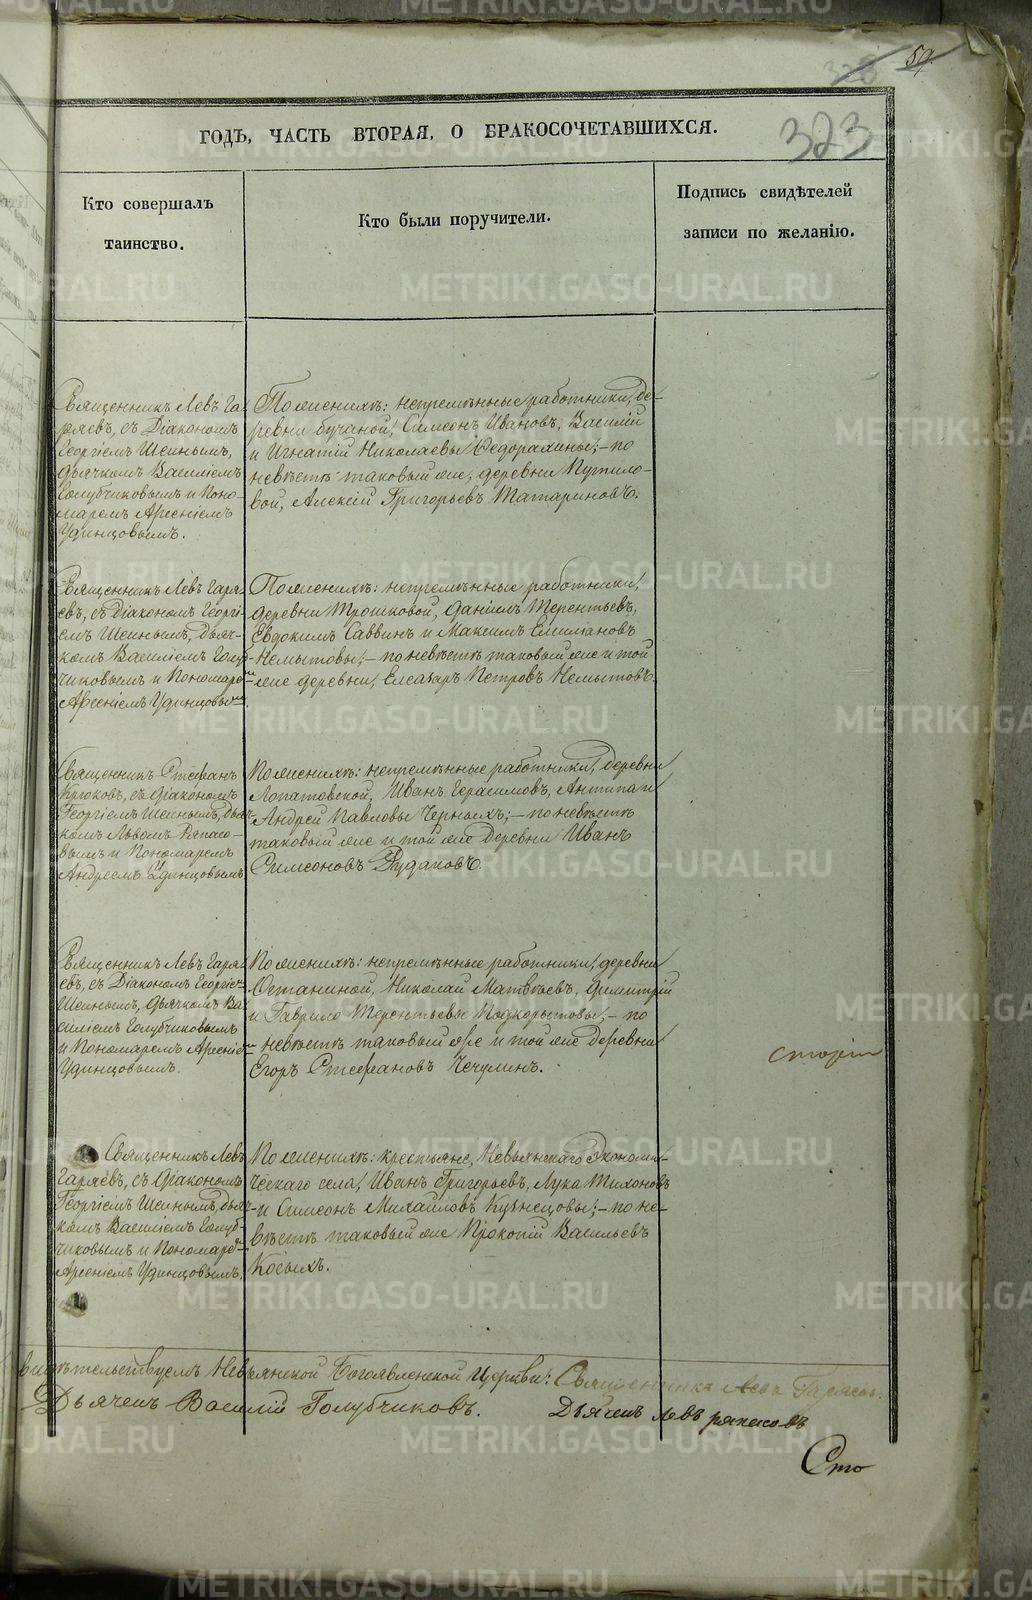 59.
328
323
ГОДЪ, ЧАСТЬ ВТОРАЯ, О БРАКОСОЧЕТАВШИХСЯ.
Кто совершалъ
таинство.
Кто были поручители.
Подпись свидѣтелей
записи по желанію.
Священникъ Левъ Га-
ряевъ, съ Діакономъ
Георгіемъ Шеинымъ,
Дьячкомъ Василіемъ
Голубчиковымъ и Поно-
маремъ Арсеніемъ
Удинцовымъ.
По женихѣ: непремѣнные работники, де-
ревни Бучиной, Симеонъ Ивановъ, Василій
и Игнатій Николаевы Ѳедорахины; – по
невѣстѣ таковый же, деревни Путило-
вой, Алексій Григорьевъ Татариновъ.
Священникъ Левъ Гаря-
евъ, съ Діакономъ Георгі-
емъ Шеинымъ, Дьяч-
комъ Василіемъ Голуб-
чиковымъ и Пономаремъ
Арсеніемъ Удинцовымъ
По женихѣ: непремѣнные работники,
деревни Трошковой, Даніилъ Терентьевъ,
Евдокимъ Саввинъ и Максимъ Емиліановъ
Немытовы; – по невѣстѣ таковый же и той
же деревни, Елеазаръ Петровъ Немытовъ.
Священникъ Стефанъ
Крюковъ, съ Діакономъ
Георгіемъ Шеинымъ, Дьяч-
комъ Львомъ Ряпасо-
вымъ и Пономаремъ
Андреемъ Удинцовымъ
По женихѣ: непремѣнные работники, деревни
Лопатовской, Иванъ Герасимовъ, Антипа и
Андрей Павловы Черныхъ; – по невѣстѣ
таковый же и той же деревни Иванъ
Симеоновъ Рудаковъ.
Священникъ Левъ Гаря-
евъ, съ Діакономъ Георгіемъ
Шеинымъ, Дьячкомъ Ва-
силіемъ Голубчиковымъ
и Пономаремъ Арсеніемъ
Удинцовымъ.
По женихѣ: непремѣнные работники, деревни
Останиной, Николай Матвѣевъ, Димитрій
и Гаврило Терентьевы Подкорытовы; – по
невѣстѣ таковый же и той же деревни
Егоръ Стефановъ Чечулинъ.
Священникъ Левъ
Гаряевъ, съ Діакономъ
Георгіемъ Шеинымъ, Дьяч-
комъ Василіемъ Голуб-
чиковымъ и Пономаремъ
Арсеніемъ Удинцовымъ.
По женихѣ: крестьяне, Невьянскаго Экономи-
ческаго села, Иванъ Григорьевъ, Лука Тихоновъ
и Симеонъ Михайловъ Кузнецовы; – по не-
вѣстѣ таковый же Прокопій Васильевъ
Косыхъ.
свидѣтельствуемъ Невьянской Богоявленской Церкви: Священникъ Левъ Гаряевъ.
Дьячекъ Василій Голубчиковъ. Дьячекъ Левъ Ряпасовъ
Сто
METRIKI.GASO-URAL.RU